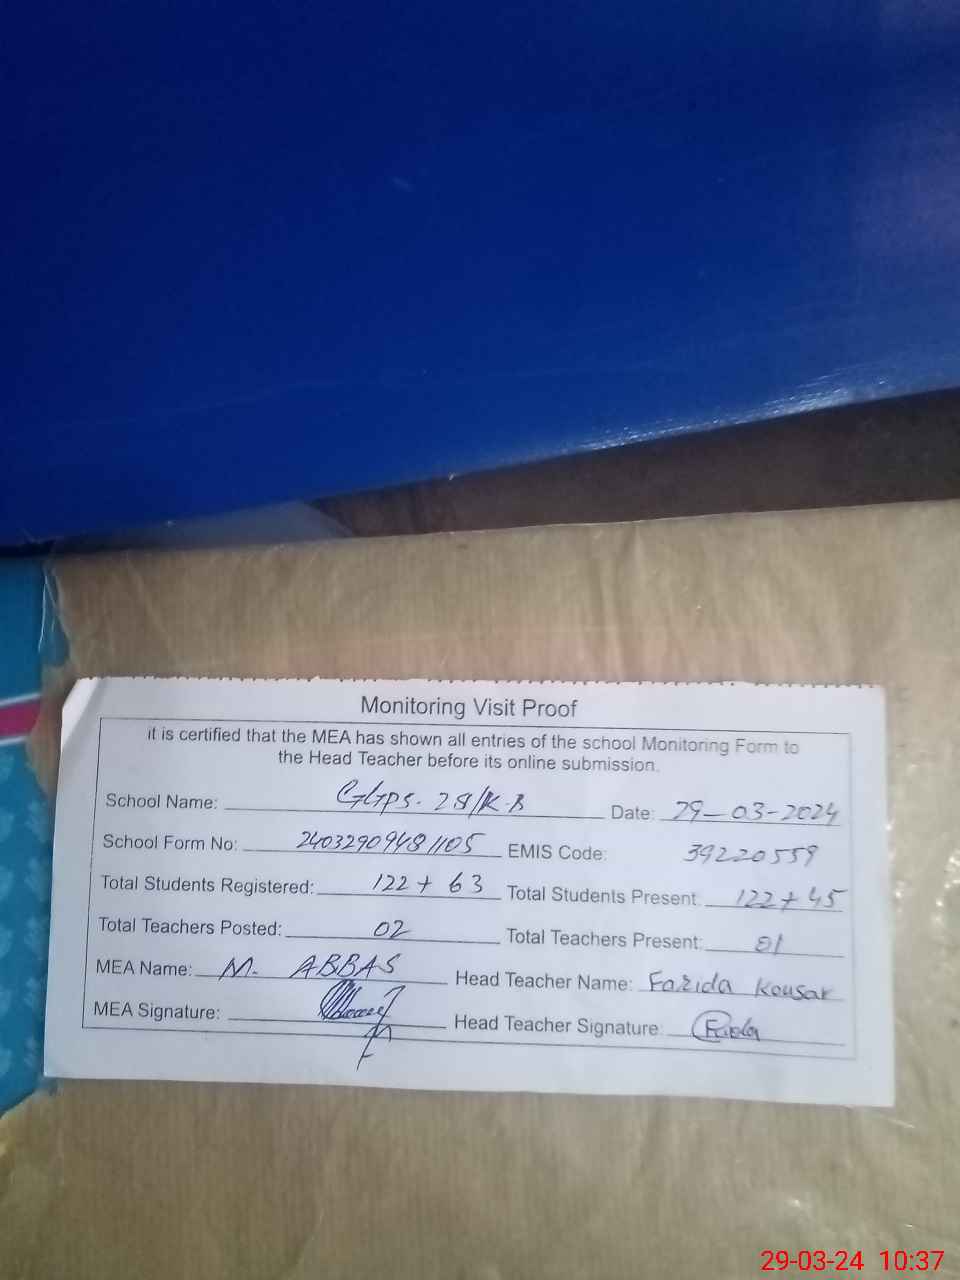 Monitoring Visit Proof
it is certified that the MEA has shown all entries of the school Monitoring Form to
the Head Teacher before its online submission.
School Name: GGPS. 28/K-B Date: 29-03-2024
School Form No: 24032909481105 EMIS Code: 39220559
Total Students Registered: 122 + 63 Total Students Present: 122 + 45
Total Teachers Posted: 02 Total Teachers Present: 01
MEA Name: M. ABBAS Head Teacher Name: Farida Kousar
MEA Signature: Head Teacher Signature: Farida
29-03-24 10:37